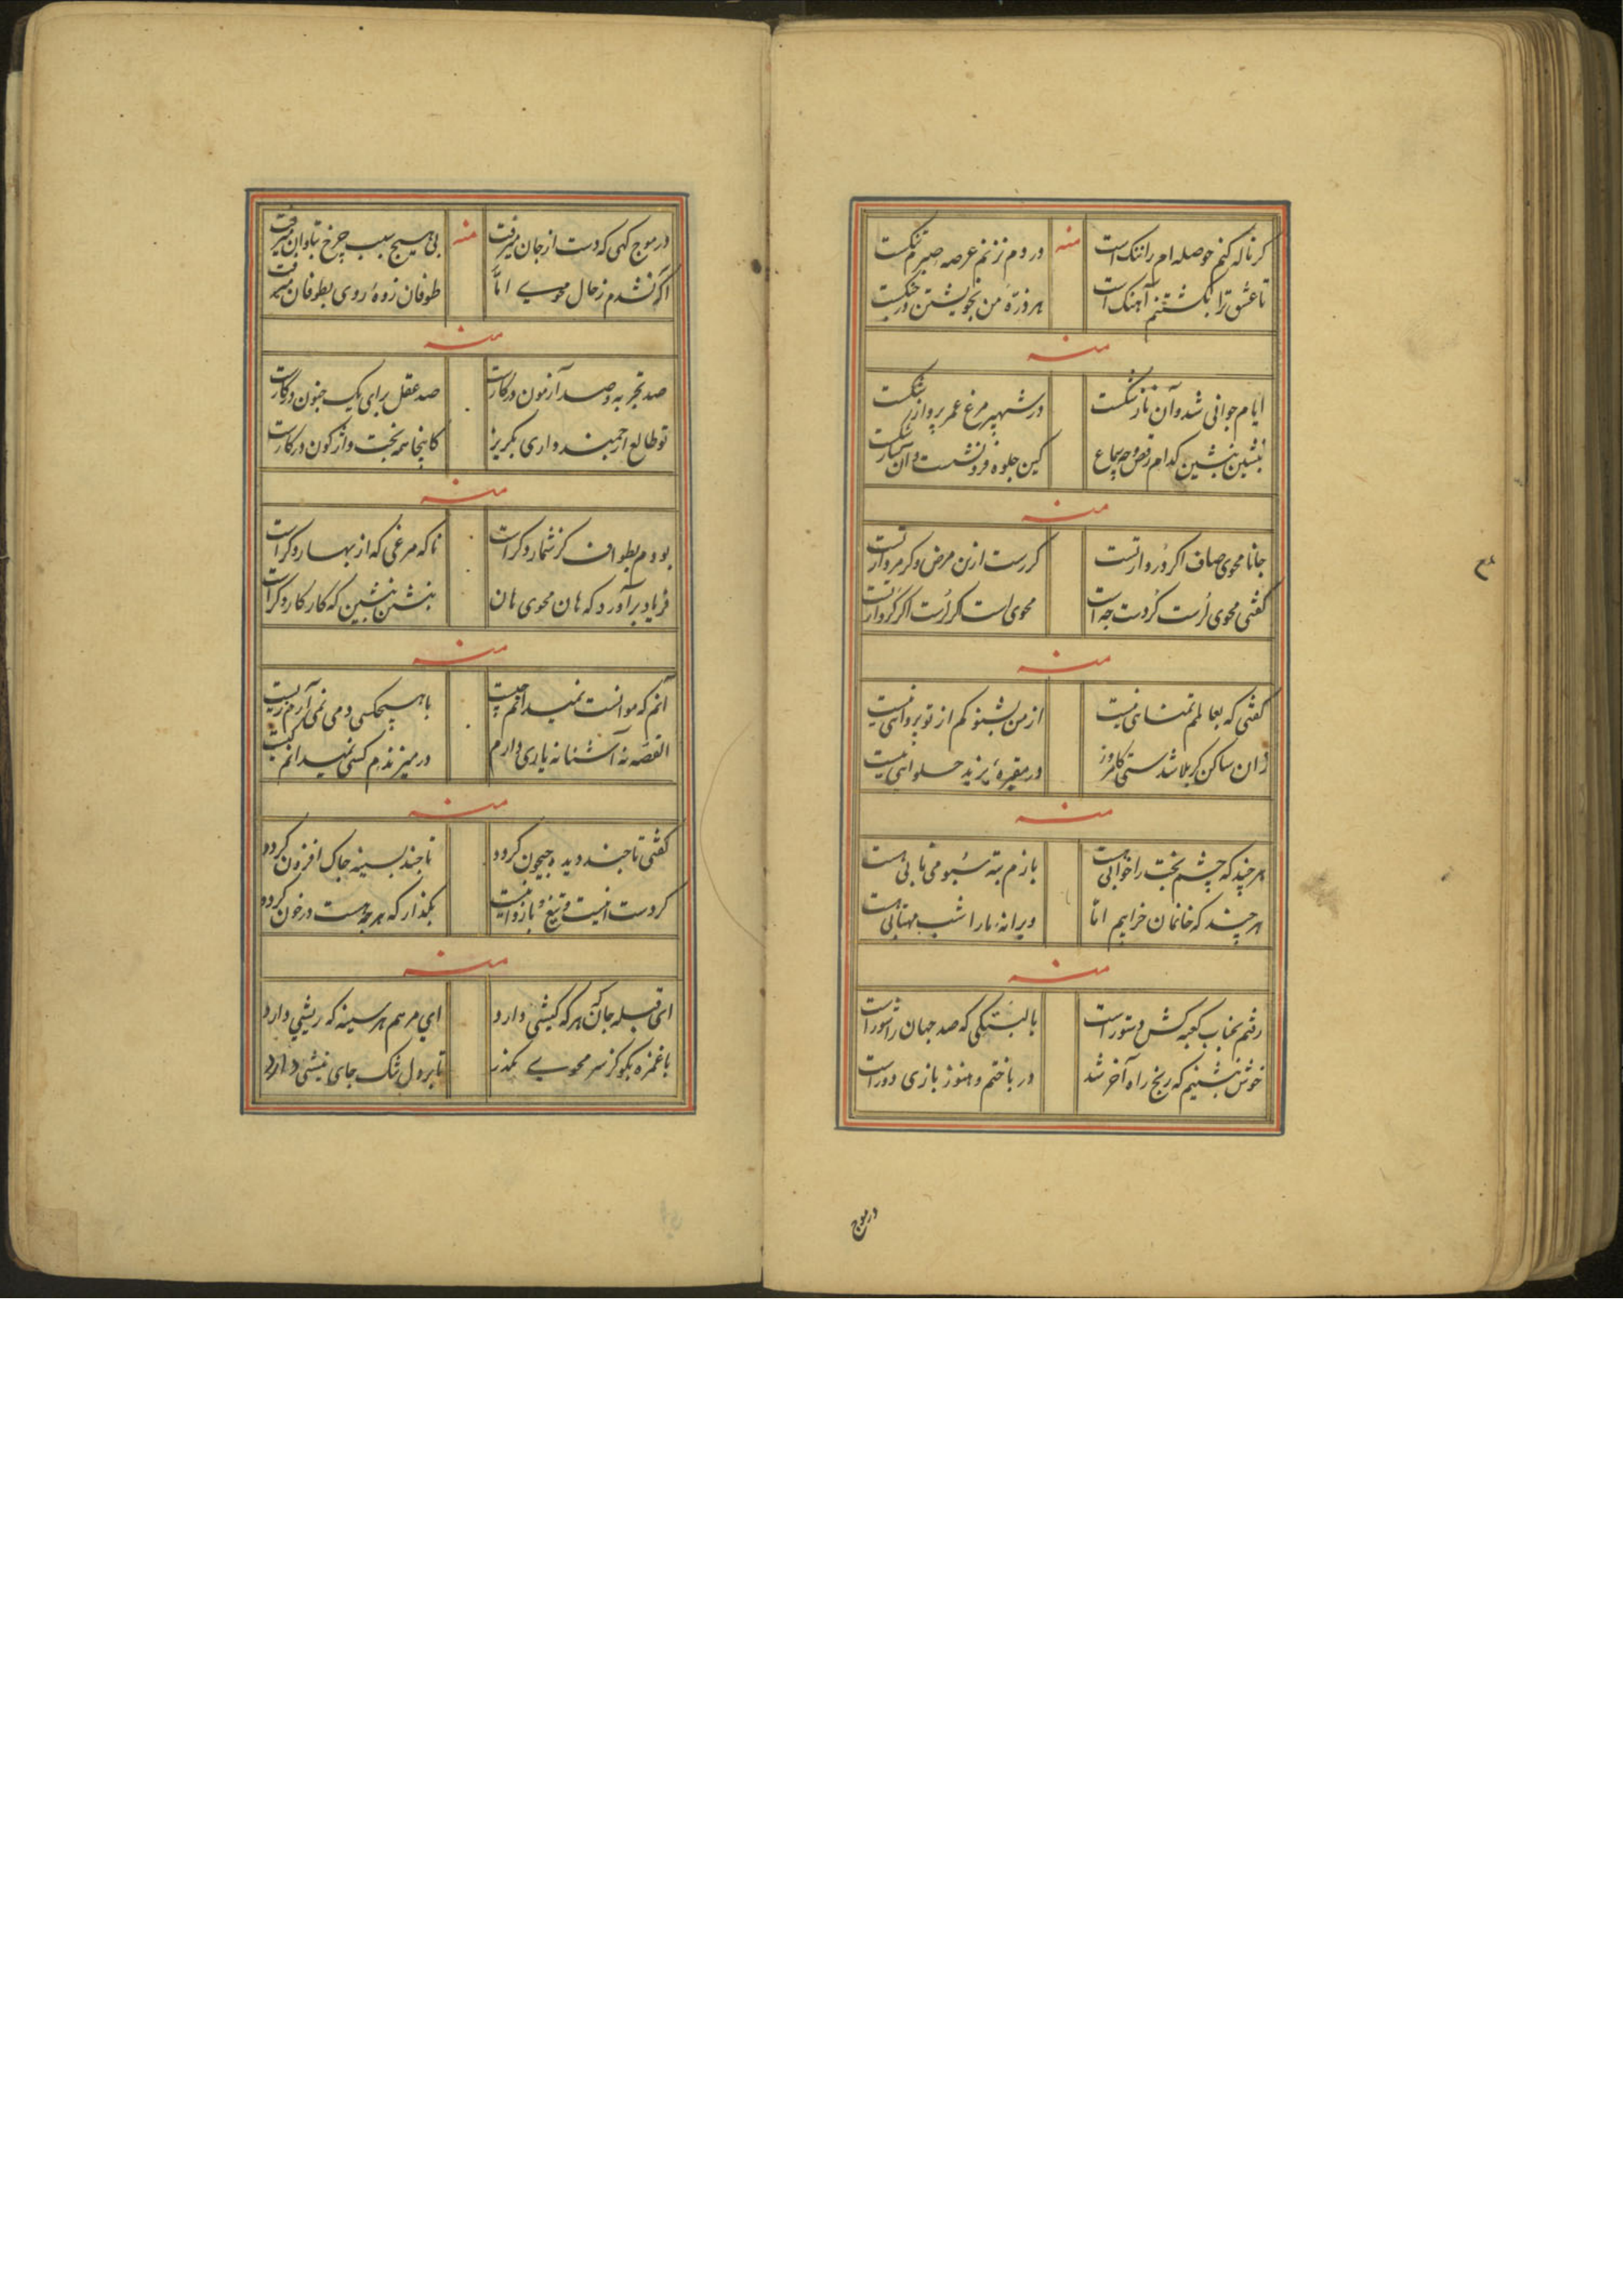 کر ناله کنم حوصله ام را ننک است منه ور دم نزنم عرصه صبرم تنکست
تا عشق ترا بکشتنم آهنک است هر ذرهٔ من بخویشتن در جنکست
منه
ایام جوانی شد و آن ناز شکست در شهپر مرغ عمر پرواز شکست
بنشین بنشین کدام رقص و چه سماع کین جلوه فرو نشست و آن ساز شکست
منه
جانا محوی صاف اکر درد از تست کر رست ازین مرض وکر مرد از تست
کفتی محوی لرست کردست چه است محوی است کر لرست اکر کرد از تست
منه
کفتی که بعالمم تمنائی نیست از من بشنو کم از تو پروائی نیست
زان ساکن کربلا شدستی کامروز در مقبرهٔ یزید حلوائی نیست
منه
هر چند که چشم بخت را خوابی هست بازم بته سبو می نابی هست
هر چند که خانمان خرابیم اما ویرانهٔ ما را شب مهتابی هست
منه
رفتم بجناب کعبه کش دستور است با لبتنکی که صد جهان را شور است
خوش بنشینیم که رنج راه آخر شد در باختم و هنوز بازی دور است
در موج
در موج کهی که دست از جان میرفت منه بی هیچ سبب چرخ بتاوان میرفت
آکه نشدم ز حال محوی اما طوفان زدهٔ روی بطوفان میرفت
منه
صد تجربه و صد آزمون در کار است صد عقل برای یک جنون در کار است
تو طالع ارجمند داری بکریز کاینجا همه بخت واژکون در کار است
منه
بودم بطواف کز شمار دکر است ناکه مرغی که از بهار دکر است
فریاد برآورد که هان محوی هان بنشین بنشین که کار کار دکر است
منه
آنم که موانست نمیدانم چیست با هیچکسی دمی نمی آرم زیست
القصه نه آشنا نه یاری دارم در میزندم کسی نمیدانم کیست
منه
کفتی تا چند دیده جیحون کردد تا چند بسینه چاک افزون کردد
کر دست اینست و تیغ و بازو اینست بکذار که هر چه هست در خون کردد
منه
ای قبله جان هر که کیشی دارد ای مرهم هر سینه که ریشی دارد
با غمزه بکو کز سر محوی بکذر تا بر دل تنک جای نیشی دارد